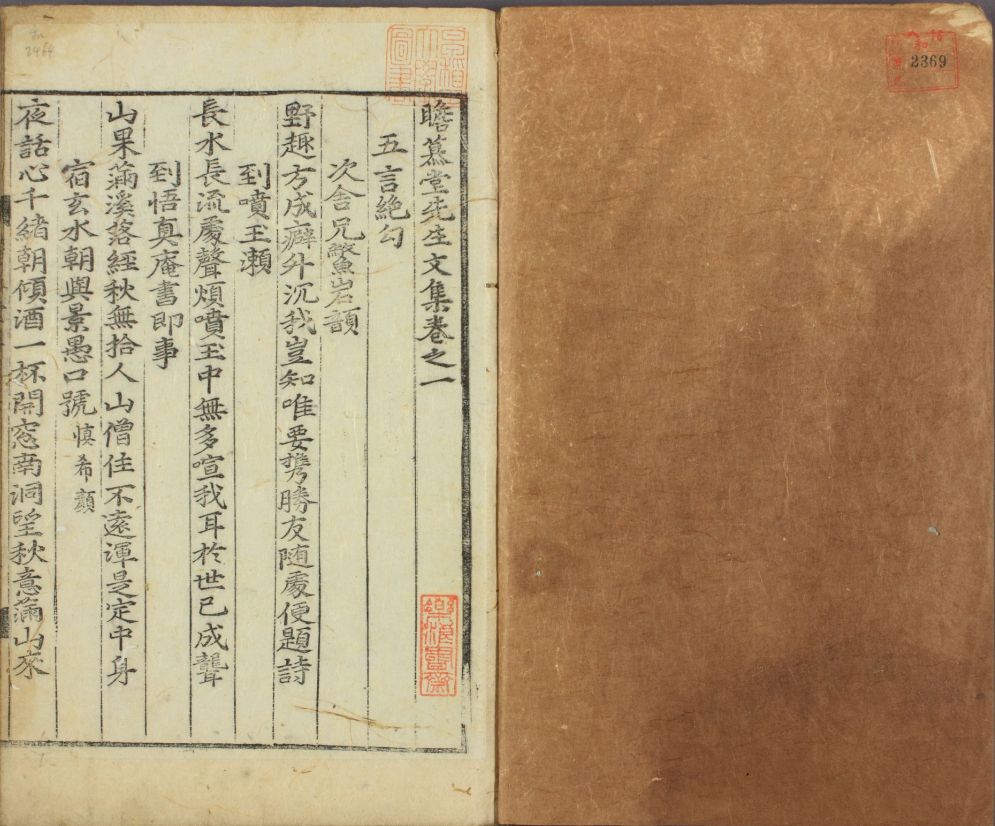 瞻慕堂先生文集卷之一
五言絶句
次舍兄鱉岩韻
野趣方成癖升沉我豈知唯要携勝友随處便題詩
到噴玉瀬
長水長流處聲煩噴玉中無多喧我耳於世已成聾
到悟真庵書即事
山果滿溪落經秋無拾人山僧住不遠渾是定中身
宿玄水朝與景愚口號慎希顔
夜話心千緒朝傾酒一杯開窓南洞望秋意滿山來
2369
2464